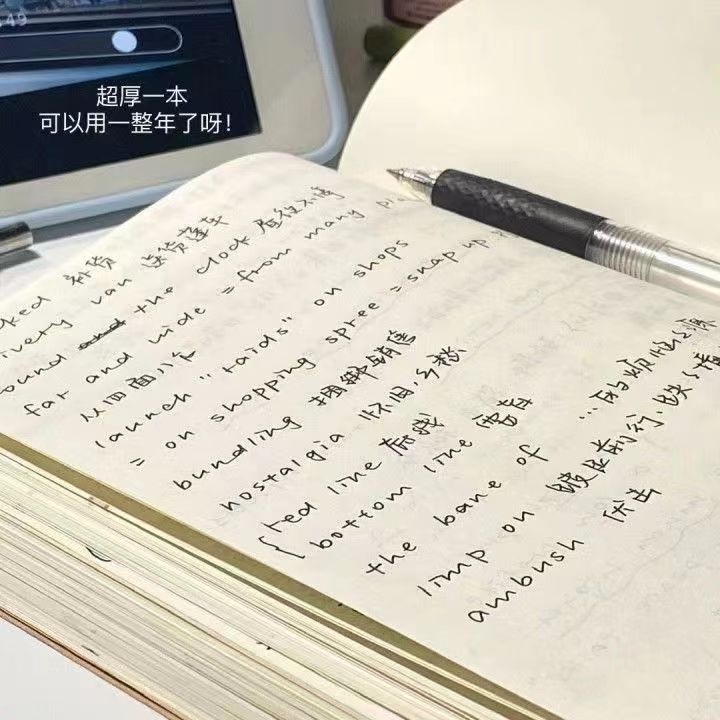 超厚一本
可以用一整年了呀!
补货 送货篷车
van the clock 昼夜不停
far and wide = from many
从四面八方
launch "raids" on shops
= on shopping spree = snap up
bundling 捆绑销售
nostalgia 怀旧,乡愁
red line 底线
bottom line
the bane of ...的烦恼之源
limp on 跛足前行.
ambush 伏击